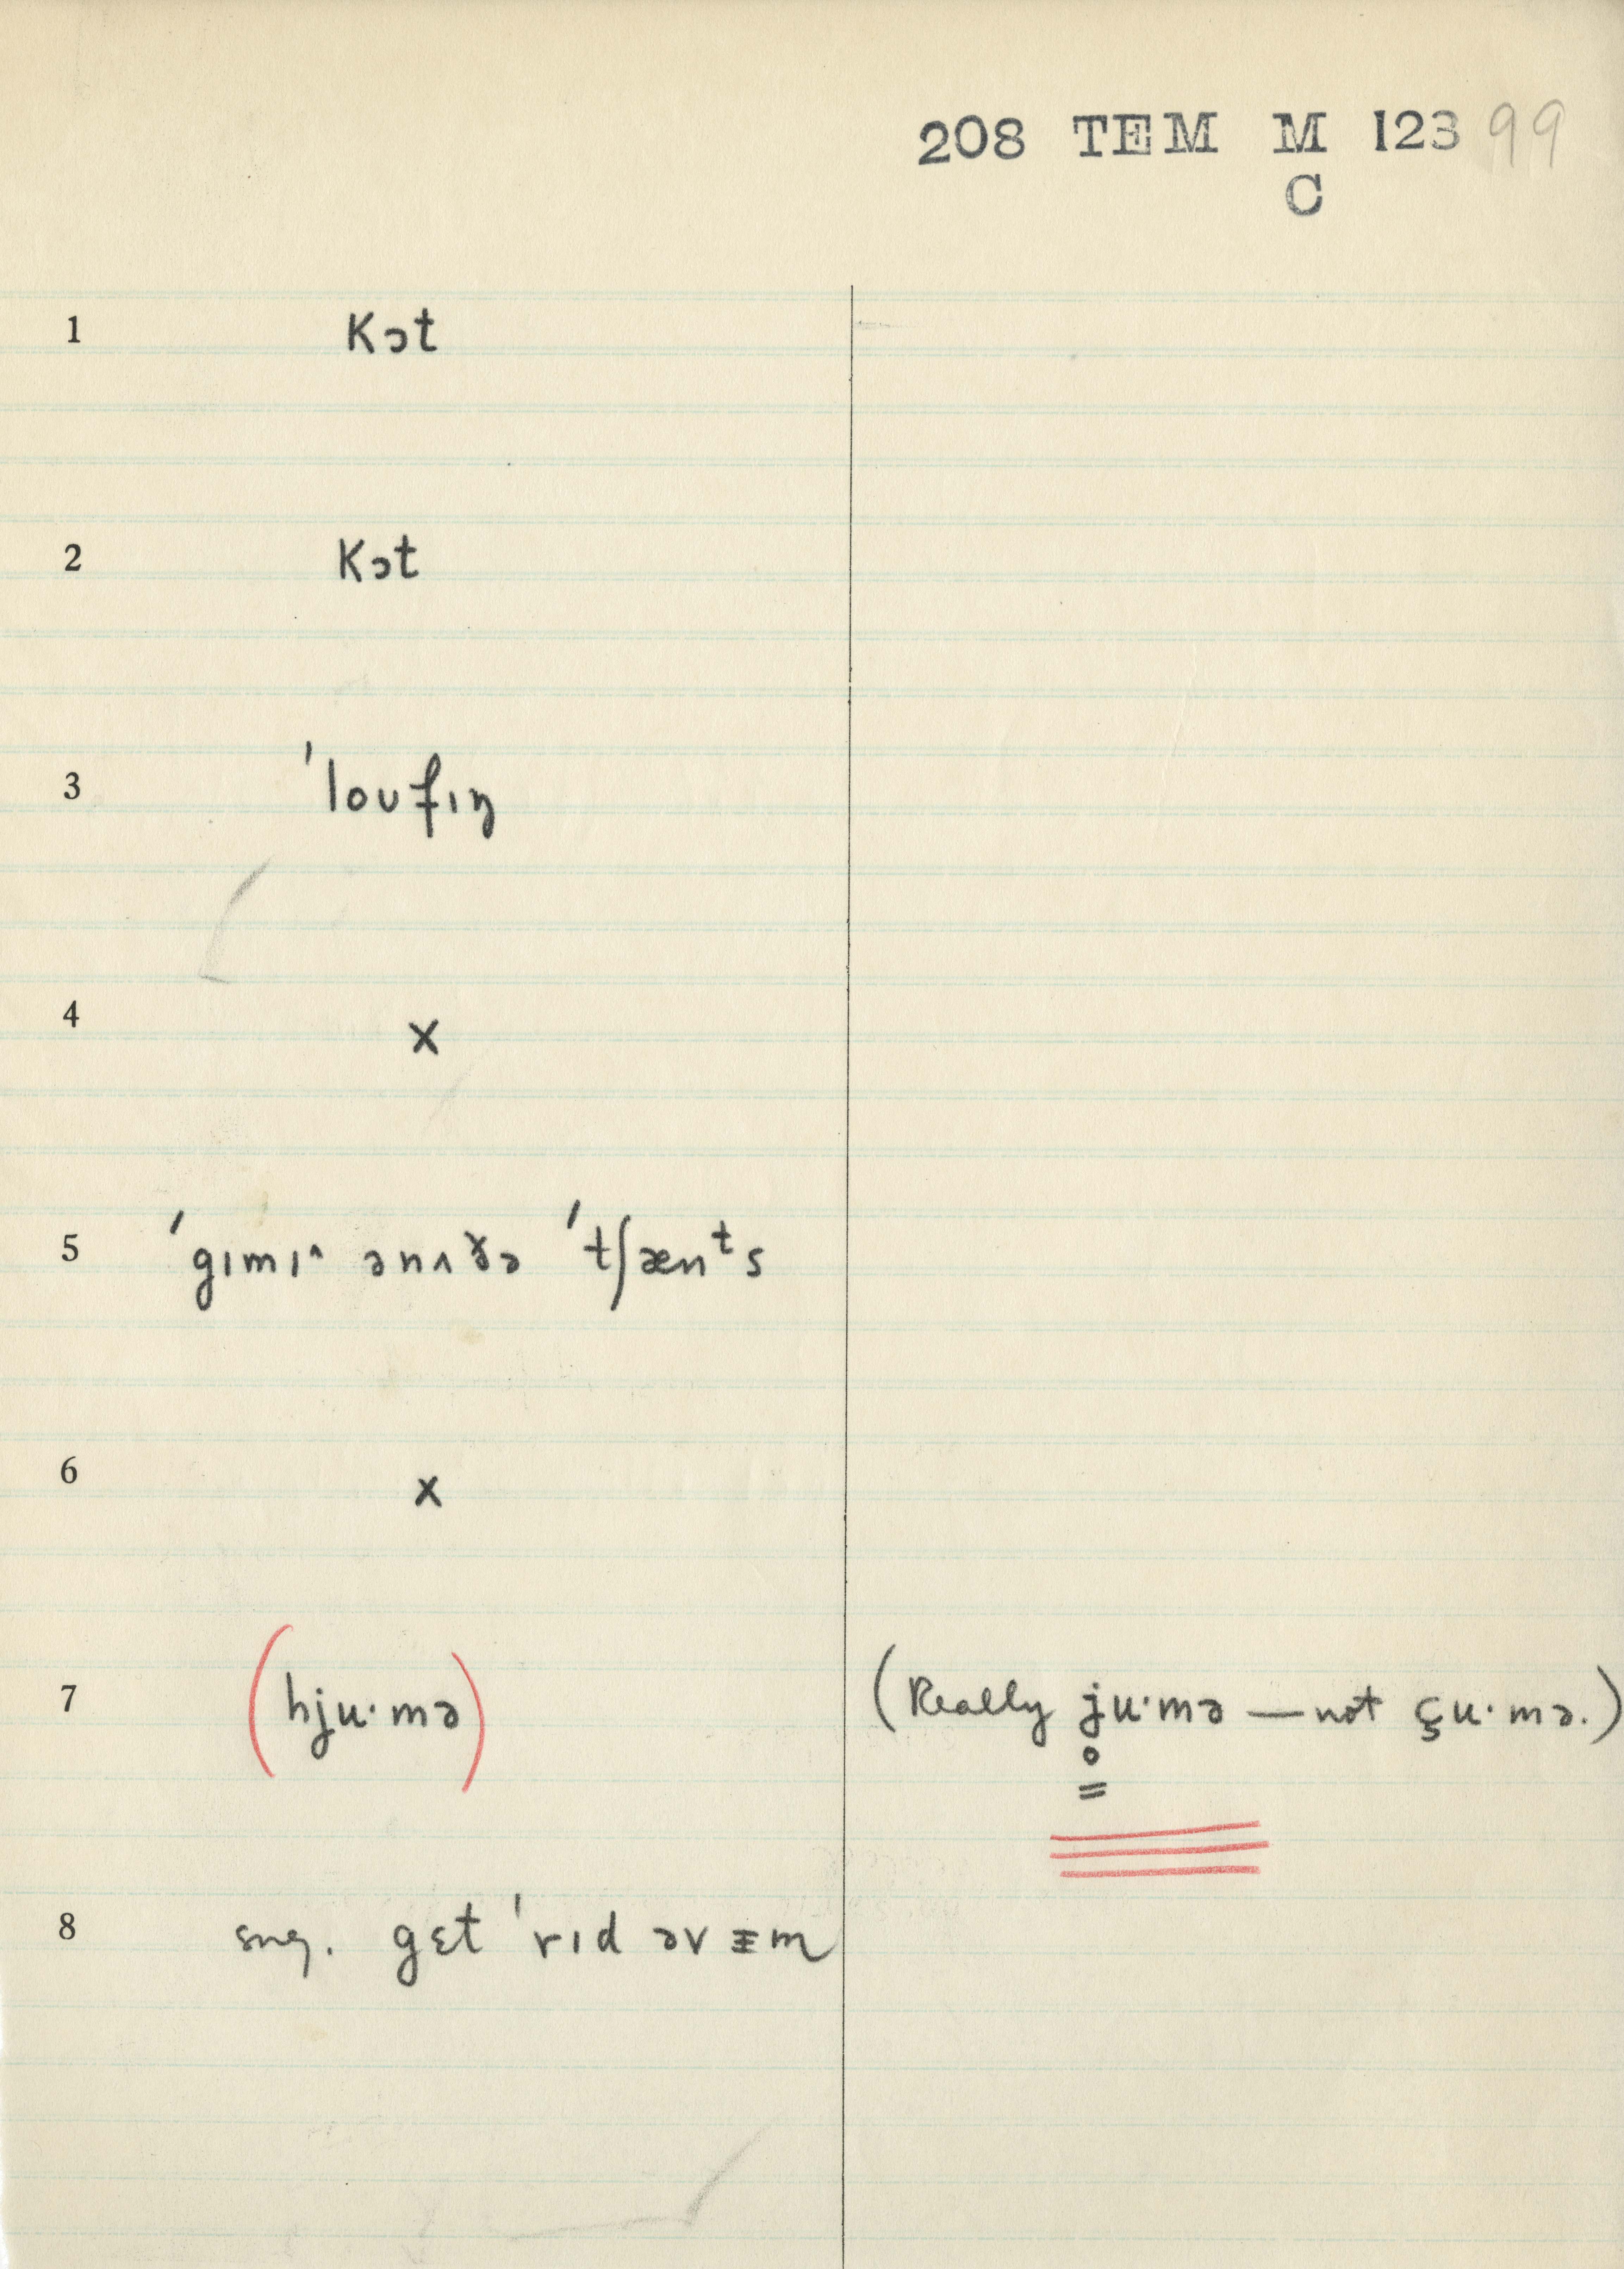 208 TEM M 123 99
C
1 kɔt
2 kɔt
3 ˈloʊfɪŋ
4 x
5 ˈgɪmɪ^ ənʌðə ˈtʃænᵗs
6 x
7 (hju·mə) (Really j̥u·mə — not çu·mə.)
8 sug. gɛt ˈrɪd əv ɪ̵m